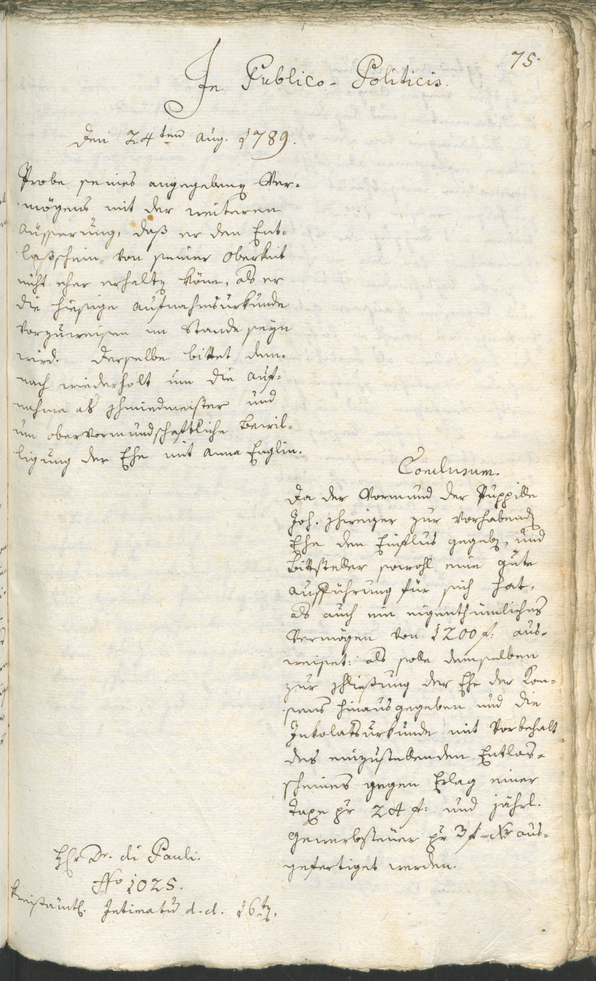 75.
In Publico-Politicis.
Den 24ten Aug. 1789.
Probe seines angegebenen Ver-
mögens mit der weiteren
Äusserung, daß er den Ent-
laßschein von seiner Oberkeit
nicht eher erhalten köne, als er
die hiesige Aufnahmsurkunde
vorzuweisen im Stande seyn
wird. Derselbe bittet dem-
nach wiederholt um die Auf-
nahme als Schmiedmeister und
um obervormundschaftliche Bewil-
ligung der Ehe mit Anna Englin.
Conclusum.
Da der Vormund der Puppille
Joh. zur vorhabenden
Ehe den Einfluß gegeben, und
Bittsteller sowohl eine gute
Aufführung für sich hat,
als auch ein eigenthümliches
Vermögen von 1200 f: aus-
weiset: als solle demselben
zur Schließung der Ehe der Kon-
sens hinausgegeben und die
Inkolatsurkunde mit Vorbehalt
des einzusehenden Entlas-
scheines gegen Erlag einer
Taxe pr 24 f: und jährl.
Gewerbsteuer pr 3 f - Xr aus-
gefertiget werden.
Hr Dr. di Pauli.
No 1025.
Kreisämtl. Intimatum d. d. 16ten